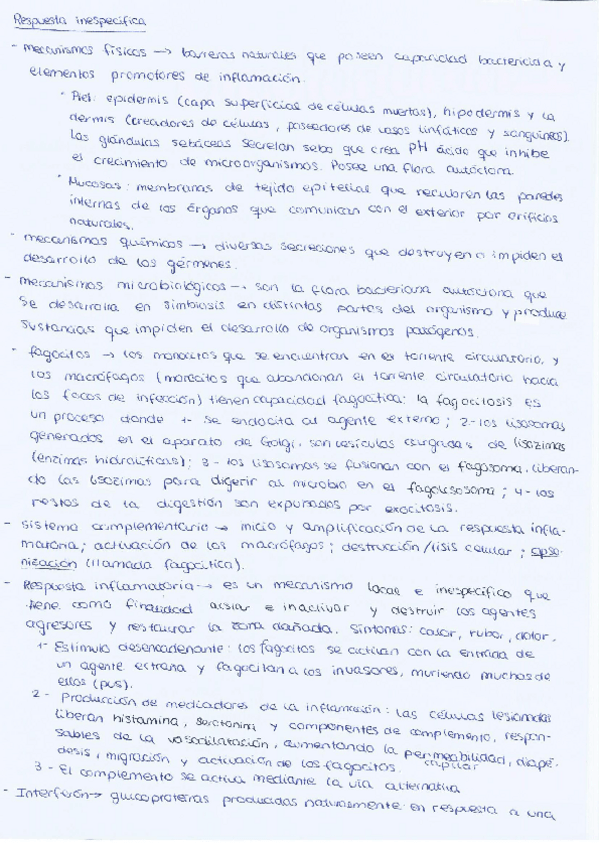 Respuesta inespecífica
- mecanismos físicos → barreras naturales que poseen capacidad bactericida y
elementos promotores de inflamación.
· Piel: epidermis (capa superficial de células muertas), hipodermis y la
dermis (creadores de células, poseedores de vasos linfáticos y sanguíneos).
Las glándulas sebáceas secretan sebo que crea PH ácido que inhibe
el crecimiento de microorganismos. Posee una flora autóctona.
· Mucosas: membranas de tejido epitelial que recubren las paredes
internas de los órganos que comunican con el exterior por orificios
naturales.
- mecanismos químicos → diversas secreciones que destruyen o impiden el
desarrollo de los gérmenes.
- mecanismos microbiológicos → son la flora bacteriana autóctona que
se desarrolla en simbiosis en distintas partes del organismo y produce
sustancias que impiden el desarrollo de organismos patógenos.
- fagocitos → los monocitos que se encuentran en el torrente circulatorio, y
los macrófagos (monocitos que abandonan el torrente circulatorio hacia
los focos de infección) tienen capacidad fagocítica: la fagocitosis es
un proceso donde 1- se endocita al agente externo; 2- los lisosomas
generados en el aparato de Golgi, son vesículas cargadas de lisozimas
(enzimas hidrolíticas); 3- los lisosomas se fusionan con el fagosoma, liberan-
do las lisozimas para digerir al microbio en el fagolisosoma; 4- los
restos de la digestión son expulsados por exocitosis.
- sistema complementario → inicio y amplificación de la respuesta infla-
matoria; activación de los macrófagos; destrucción/lisis celular; opso-
nización (llamada fagocítica).
- Respuesta inflamatoria → es un mecanismo local e inespecífico que
tiene como finalidad aislar e inactivar y destruir los agentes
agresores y restaurar la zona dañada. Síntomas: calor, rubor, dolor.
1- Estímulo desencadenante: los fagocitos se activan con la entrada de
un agente extraño y fagocitan a los invasores, muriendo muchos de
ellos (pus).
2- Producción de mediadores de la inflamación: las células lesionadas
liberan histamina, serotonina y componentes de complemento, respon-
sables de la vasodilatación, aumentando la permeabilidad, diapé-
desis, migración y activación de los fagocitos. capilar
3- El complemento se activa mediante la vía alternativa
- Interferón → glucoproteínas producidas naturalmente en respuesta a una